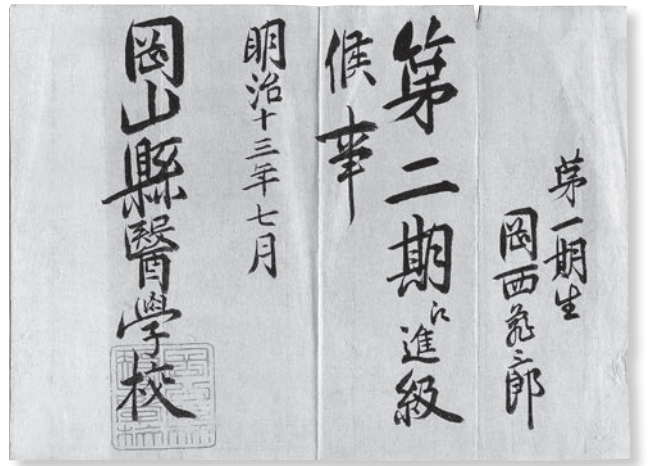 第一期生
岡西郎
第二期江進級
候事
明治十三年七月
岡山縣醫學校